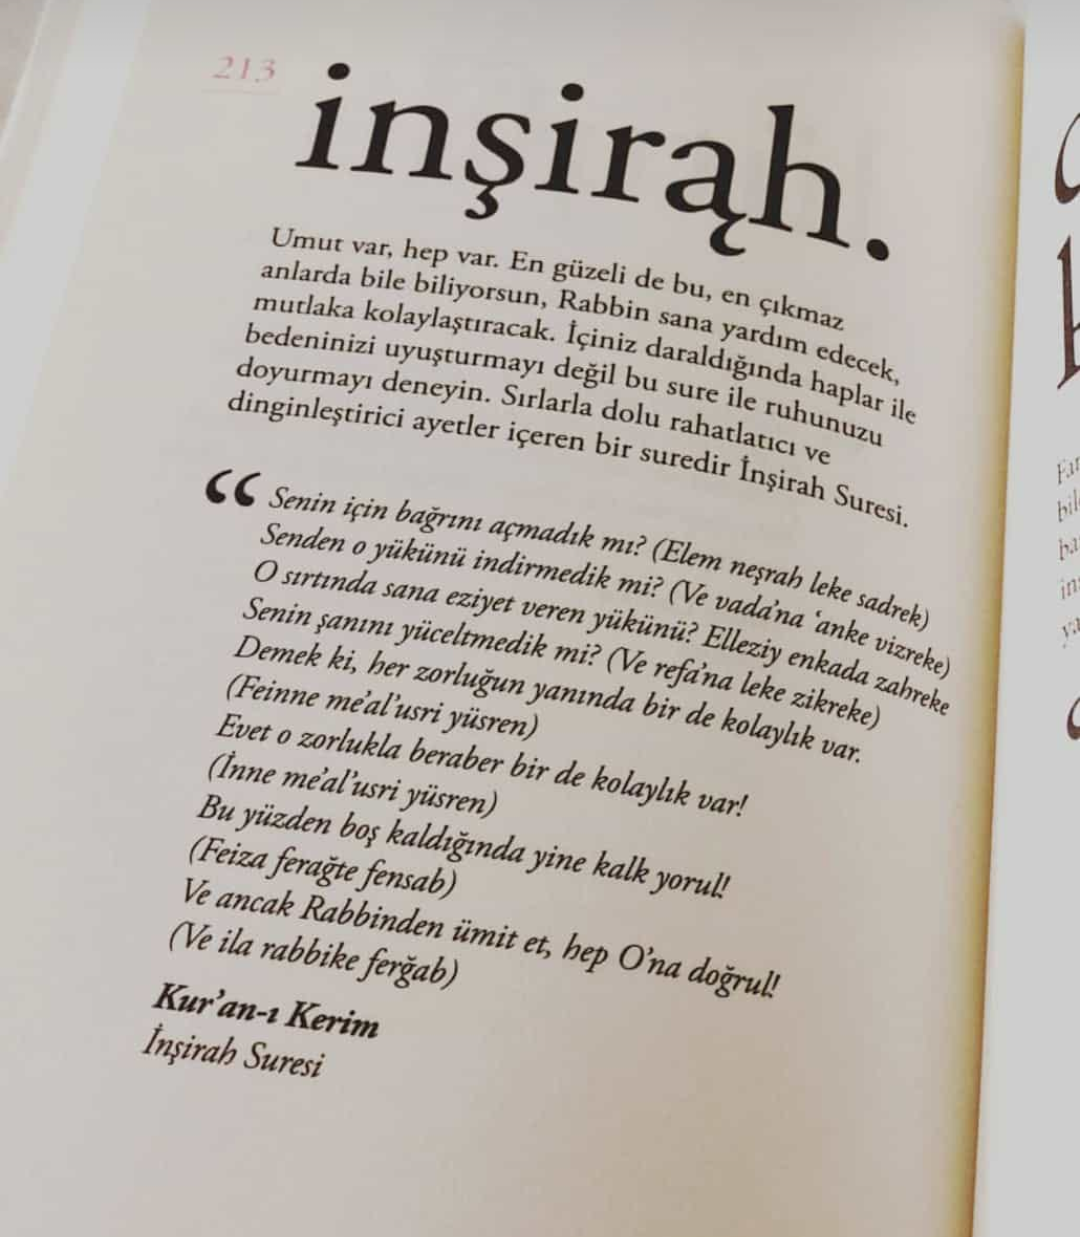 213
inşirąh.
Umut var, hep var. En güzeli de bu, en çıkmaz
anlarda bile biliyorsun, Rabbin sana yardım edecek,
mutlaka kolaylaştıracak. İçiniz daraldığında haplar ile
bedeninizi uyuşturmayı değil bu sure ile ruhunuzu
doyurmayı deneyin. Sırlarla dolu rahatlatıcı ve
dinginleştirici ayetler içeren bir suredir İnşirah Suresi.
“ Senin için bağrını açmadık mı? (Elem neşrah leke sadrek)
Senden o yükünü indirmedik mi? (Ve vada’na ‘anke vizreke)
O sırtında sana eziyet veren yükünü? Elleziy enkada zahreke
Senin şanını yüceltmedik mi? (Ve refa’na leke zikreke)
Demek ki, her zorluğun yanında bir de kolaylık var.
(Feinne me’al’usri yüsren)
Evet o zorlukla beraber bir de kolaylık var!
(İnne me’al’usri yüsren)
Bu yüzden boş kaldığında yine kalk yorul!
(Feiza ferağte fensab)
Ve ancak Rabbinden ümit et, hep O’na doğrul!
(Ve ila rabbike ferğab)
Kur’an-ı Kerim
İnşirah Suresi